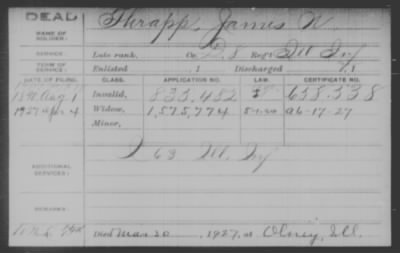 DEAD
NAME OF SOLDIER: Thrapp, James N.
SERVICE: Late rank, Co. D, 8 Reg't Ill Inf
TERM OF SERVICE: Enlisted , 1 Discharged , 1
DATE OF FILING. CLASS. APPLICATION NO. LAW. CERTIFICATE NO.
1891 Aug 1 Invalid, 833,482 658,338
1927 Apr 4 Widow, 1,575,774 5-1-20 A6-17-27
Minor,
ADDITIONAL SERVICES: I 63 Ill. Inf
REMARKS:
Died Mar 30, 1927, at Olney, Ill.